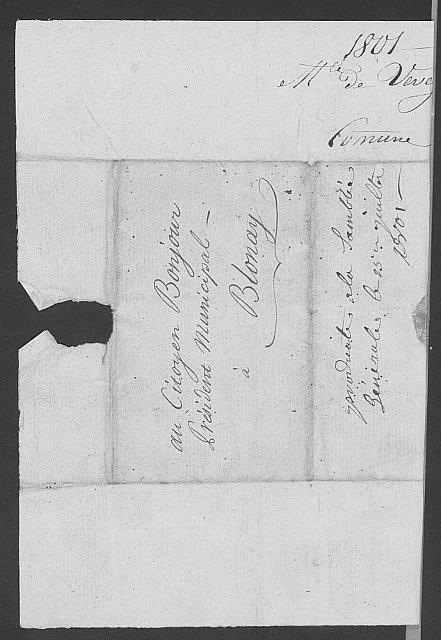 1801
Mlle de Veve
Comune
au Citoyen Bonjour
Président Municipal
à
Blonay
produite a la Samblée
Générale le 15e juillet
1801